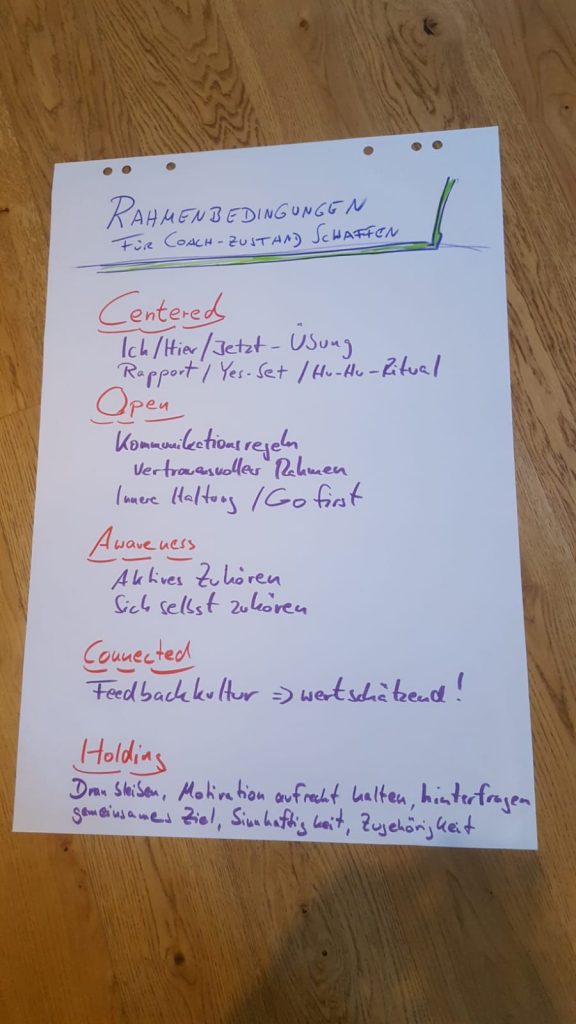 RAHMENBEDINGUNGEN
FÜR COACH-ZUSTAND SCHAFFEN
Centered
Ich/Hier/Jetzt-Übung
Rapport/Yes-Set/Hu-Hu-Ritual
Open
Kommunikationsregeln
Vertrauensvoller Rahmen
Innere Haltung/Go first
Awareness
Aktives Zuhören
Sich selbst zuhören
Connected
Feedbackkultur => wertschätzend!
Holding
Dran bleiben, Motivation aufrecht halten, hinterfragen
gemeinsames Ziel, Sinnhaftigkeit, Zugehörigkeit